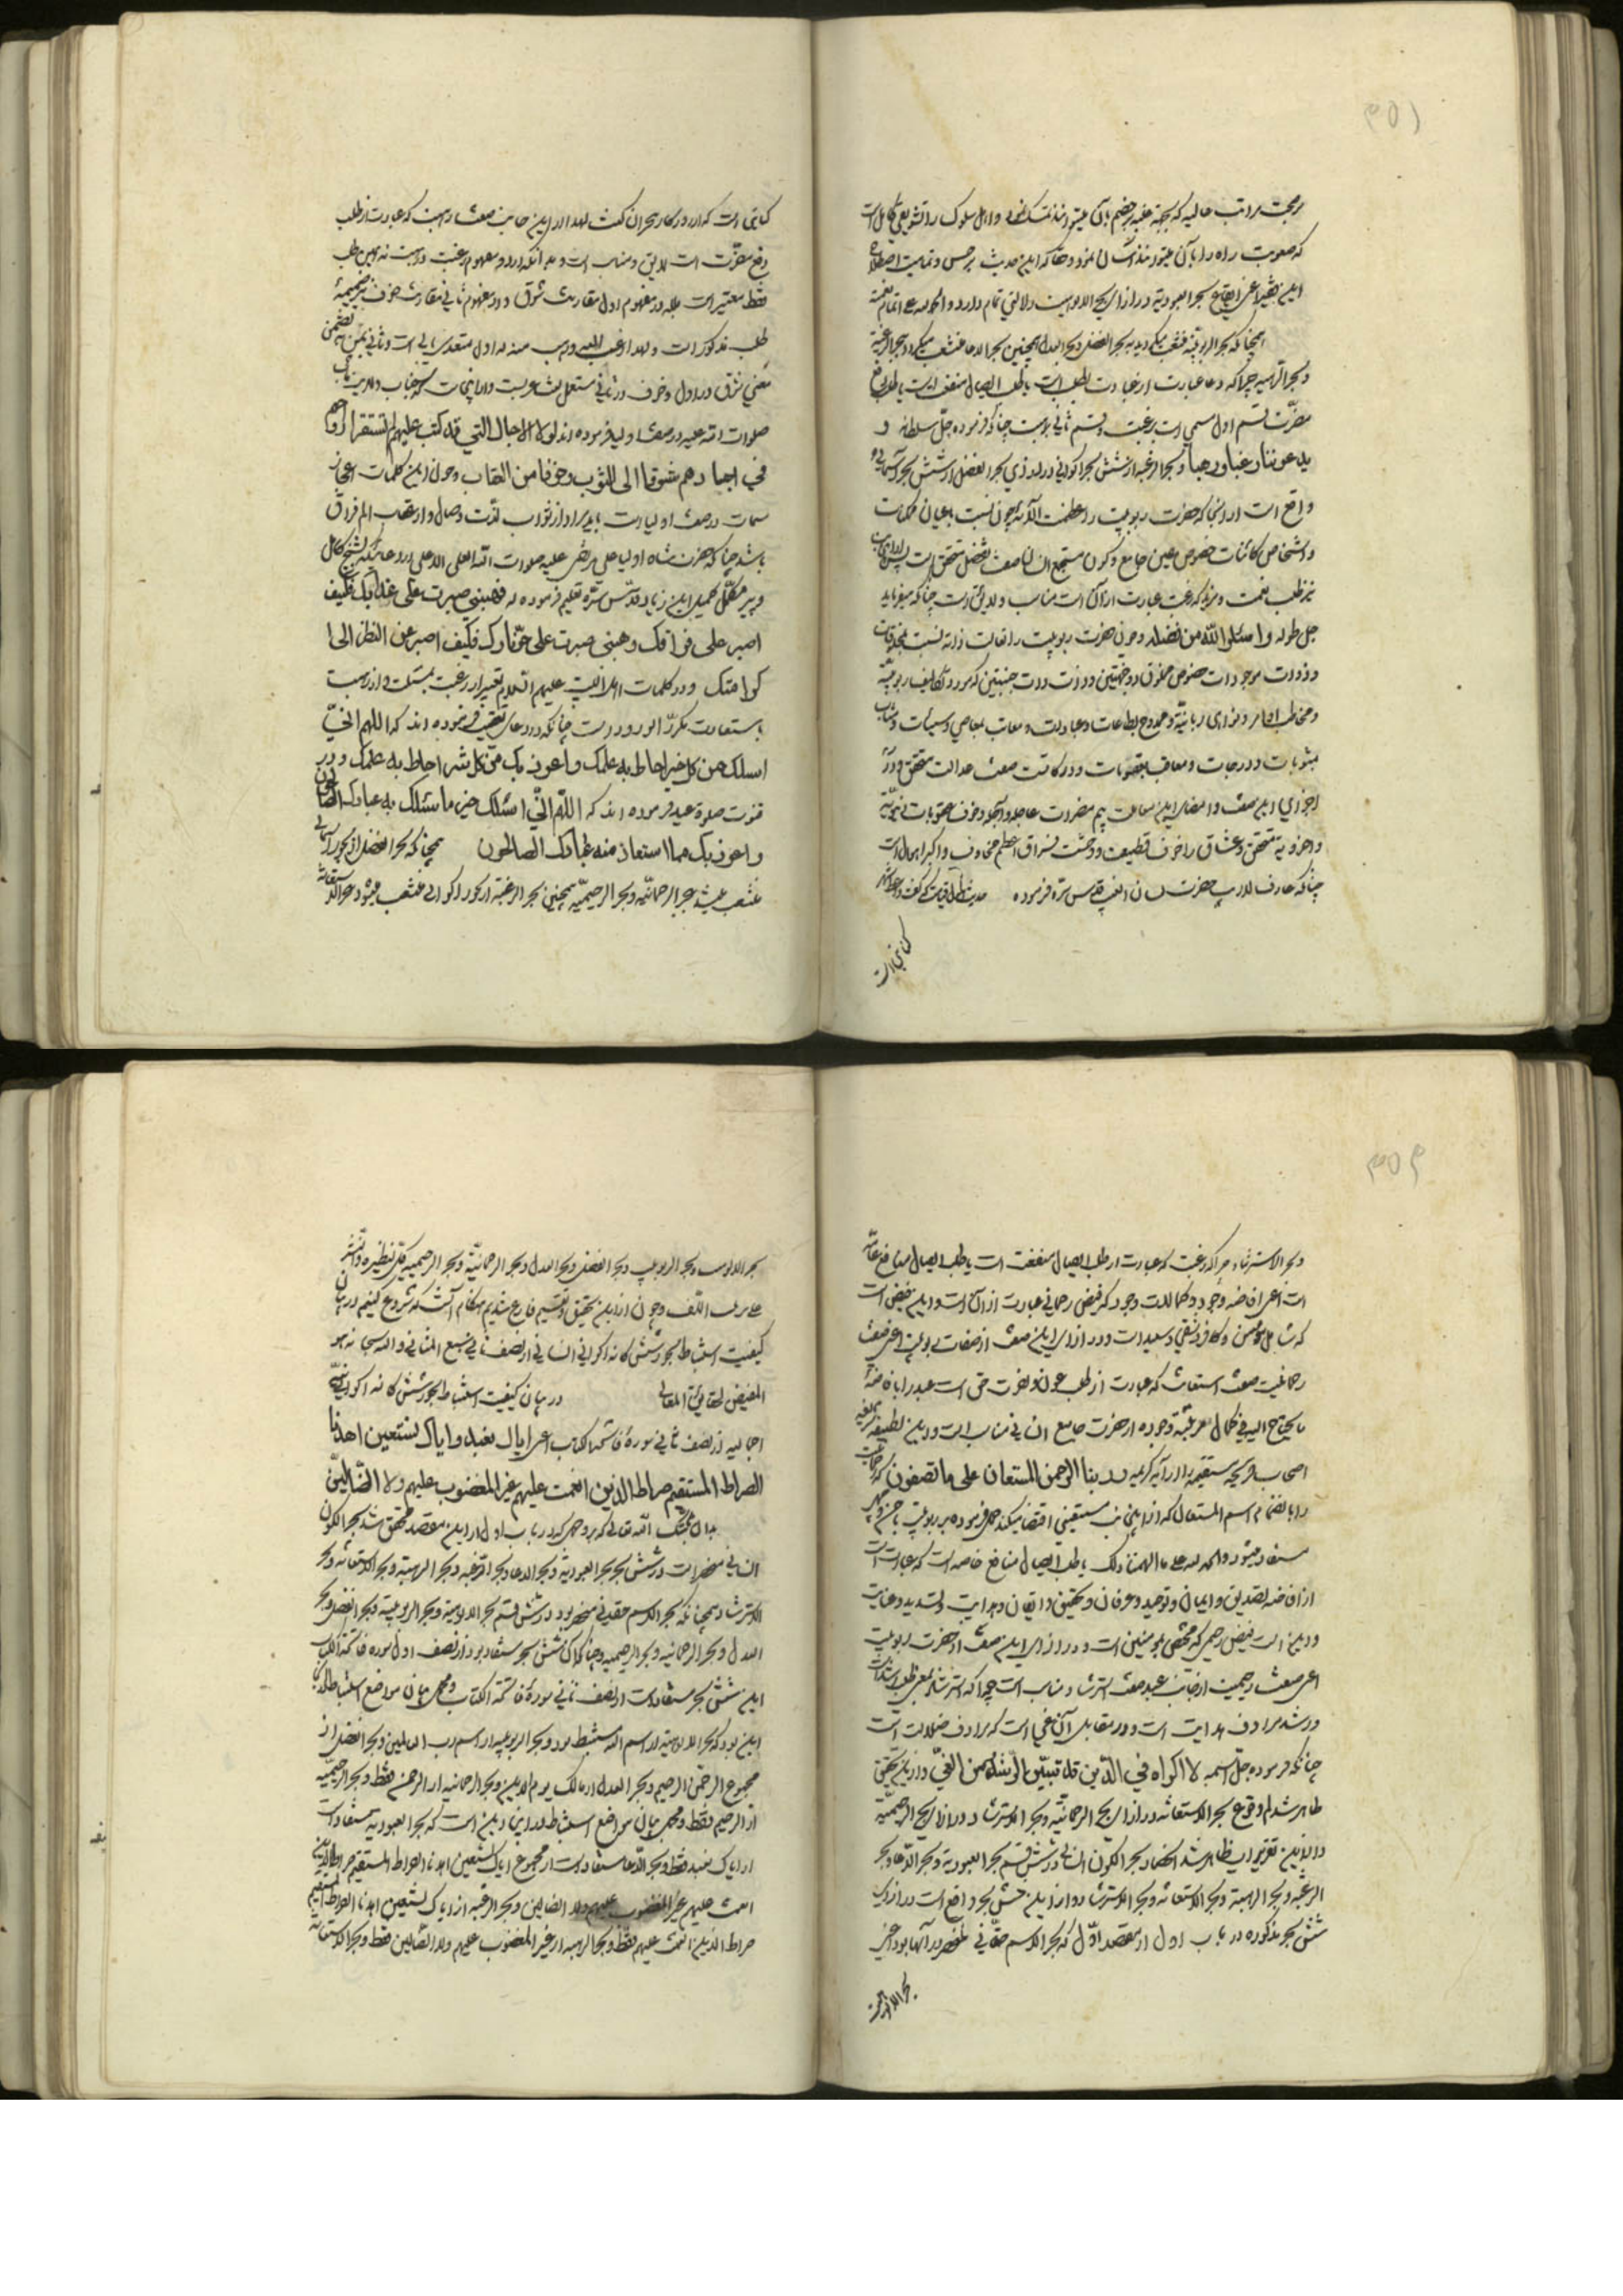 ۳۵۱
بر محبت مراتب عالیه که
که صعوبت راه را بآن این حدیث بر حسن و تمامیت
این اعنی ایقاع بحر العبودیة در ازای بحر الالوهیت دلالتی تمام دارد و الحمد لله علی اتمام نعمته
همچنانکه بحر الربوبیة منشعب میگردید به بحر الفضل و بحر العدل همچنین بحر الدعا منشعب میگردد به بحر الرغبة
و بحر الرهبة چراکه دعا عبارت از طلب است یا طلب ایصال منفعت است یا طلب دفع
مضرّت قسم اول مسمی است برغبت و قسم ثانی برهبت چنانکه فرموده جلّ سلطانه و
یدعوننا رغبا و رهبا و بحر الرغبة از شش بحر اکوانی در ازای بحر الفضل از شش بحر
واقع است از آنجا که حضرت ربوبیت را نسبت باعیان ممکنات
و اشخاص کائنات خصوص معین جامع و کون مستجمع انسانی صفت تفضل متحقق است
نیز طلب نعمت و مزید که رغبت عبارت از آن است مناسب و لایق است چنانکه میفرماید
جل طوله و اسئلوا الله من فضله و چون حضرت ربوبیت را نسبت بمخلوقات
و ذوات موجودات خصوص مخلوق ذو جهتین و ذات جنبتین که مورد تکالیف ربوبیّه
و مخاطب اوامر و نواهی ربانیّه و ممدوح بطاعات و عبادات و معاتب بمعاصی و سیئات و مثاب
بمثوبات و درجات و معاقب بعقوبات و درکات صفت عدالت متحقق و در
اجرای این صفت و امضای این بیم مضرات عاجله و آجله و خوف عقوبات دنیویّه
و اخرویه متحقق و عشاق را خوف قطیعت و وحشت فراق اعظم مخاوف و اکبر اهوال است
چنانکه عارف حضرت لسان الغیب قدس سره فرموده حدیث هول قیامت که گفت واعظ شهر
کنایتی است
کنایتی است که از روزگار هجران گفت لهذا از این جانب صفت رهبت که عبارت از طلب
دفع مضرّت است لایق و مناسب است و بدانکه در دو مفهوم رغبت و رهبت نه همین طلب
فقط معتبر است بلکه در مفهوم اول مقارنت شوق و در مفهوم ثانی مقارنت خوف نیز ضمیمهٔ
طلب مذکور است و لهذا ارغب الیه و رهب منه که اول متعدی بالی است و ثانی بمن
معنی شوق در اول و خوف در ثانی مستعمل
صلوات الله علیه در صفت اولیا فرموده اند لولا الاجال التی قد کتب علیهم لم تستقر ارواحهم
فی اجسادهم شوقا الی الثوب و خوفا من العقاب و چون این کلمات اعجاز
سمات در صفت اولیاست باید مراد از ثواب لذت وصال و از عقاب الم فراق
باشد چنانکه حضرت شاه اولیا علی مرتضی علیه صلوات الله العلی الاعلی در دعائیکه بشیخ کامل
و پیر مکمّل کمیل ابن زیاد قدّس سرّه تعلیم فرموده که فهبنی صبرت علی عذابک فکیف
اصبر علی فراقک و هبنی صبرت علی حرّ نارک فکیف اصبر عن النظر الی
کرامتک و در کلمات اهل البیت علیهم السلام تعبیر از رغبت بمسئلت و از رهبت
باستعاذت مکرر الورود است چنانکه در دعای فرموده اند که اللهم انّی
اسئلک من کل خیر احاط به علمک و اعوذ بک من کل شر احاط به علمک و در
قنوت صلوة عید فرموده اند که اللهم انّی اسئلک خیر ما سئلک به عبادک الصالحون
و اعوذ بک مما استعاذ منه عبادک الصالحون همچنانکه بحر الفضل از بحور
منشعب میشد به بحر الرحمانیّة و بحر الرحیمیّة همچنین بحر الرغبة از بحور اکوانی منشعب میشود به بحر الاستعانة
۳۵۲
و بحر الاسترشاد چراکه رغبت که عبارت از طلب ایصال منفعت است یا طلب ایصال منافع عامّه
است اعنی افاضه وجود و کمالات وجود که فیض رحمانی عبارت از آن است و این فیض است
که شامل مؤمن و کافر و شقی و سعید است و در ازای این صفت از صفات ربوبیت اعنی صفت
رحمانیت صفت استعانت که عبارت از طلب عون و نصرت حق است عبد را بافاضهٔ
ما یحتاج الیه فی کمال وجوده از حضرت جامع انسانی مناسب است و در این لطیفه
اصحاب قریحه مستقیمه را از آیه کریمه و ربنا الرحمن المستعان علی ما تصفون که
را بانضمام اسم المستعان که از این جانب مستعینی اقتضا میکند حمل فرموده بر ربوبیت
مستفاد میشود و الحمد لله علی ما الهمنا ذلک یا طلب ایصال منافع خاصه است که عبارت است
از افاضه تصدیق و ایمان و توحید و عرفان و تحقیق و ایقان و هدایت و تسدید و عنایت
و این است فیض رحیمی که مختص بمؤمنین است و در ازای این صفت از حضرت ربوبیت
اعنی صفت رحیمیت از جانب عبد صفت استرشاد مناسب است چراکه استرشاد بمعنی طلب رشد است
و رشد مرادف هدایت است و در مقابل آن غی است که مرادف ضلالت است
چنانکه فرموده جلّ اسمه لا اکراه فی الدّین قد تبیّن الرّشد من الغیّ و از این تحقیق
ظاهر شد لم وقوع بحر الاستعانة در ازای بحر الرحمانیّة و بحر الاسترشاد در ازای بحر الرحیمیّة
و از این تقریرات ظاهر شد انحصار بحر الکون انسانی در شش قسم بحر العبودیة و بحر الدّعا و بحر
الرغبة و بحر الرهبة و بحر الاستعانة و بحر الاسترشاد و از این شش بحر واقع است در ازای
شش بحر مذکوره در باب اول از مقصد اوّل که بحر الاسم حقّانی منحصر در آنها بود اعنی
بحر الالوهیة
بحر الالوهیت و بحر الربوبیت و بحر الفضل و بحر العدل و بحر الرحمانیّة و بحر الرحیمیّة کلّ بنظیره و
علی ترتیب اللّف و چون از این تحقیق و تقسیم فارغ شدیم هنگام آنست که شروع کنیم در بیان
کیفیت استنباط بحور ششگانه اکوانی انسانی از نصف ثانی سبع المثانی و الله سبحانه هو
المفیض لحقایق المعانی در بیان کیفیت استنباط بحور ششگانه اکوانی
اجمالیه از نصف ثانی سورهٔ فاتحة الکتاب اعنی ایاک نعبد و ایاک نستعین اهدنا
الصراط المستقیم صراط الذین انعمت علیهم غیر المغضوب علیهم و لا الضّالین
بدان الله تعالی که بر وجهی که در باب اول از این مقصد محقق شد بحر الکون
انسانی منحصر است در شش بحر بحر العبودیة و بحر الدعا و بحر الرّغبة و بحر الرهبة و بحر الاستعانة و بحر
الاسترشاد همچنانکه بحر الاسم حقانی منحصر بود در شش قسم بحر الالوهیة و بحر الربوبیّة و بحر الفضل و بحر
العدل و بحر الرحمانیه و بحر الرحیمیه و چنانکه آن شش بحر مستفاد بود از نصف اول سوره فاتحة الکتاب
این شش بحر مستفاد است از نصف ثانی سورهٔ فاتحة الکتاب و مجمل بیان مواضع استنباط
این بود که بحر الالوهیة از اسم الله مستنبط بود و بحر الربوبیة از اسم رب العالمین و بحر الفضل از
مجموع الرحمن الرحیم و بحر العدل از مالک یوم الدین و بحر الرحمانیه از الرحمن فقط و بحر الرحیمیه
از الرحیم فقط و مجمل بیان مواضع استنباط در اینجا این است که بحر العبودیه مستفاد است
از ایاک نعبد فقط و بحر الدّعا مستفاد است از مجموع ایاک نستعین اهدنا الصراط المستقیم صراط الذین
انعمت علیهم غیر المغضوب علیهم و لا الضالین و بحر الرغبة از ایاک نستعین اهدنا الصراط المستقیم
صراط الذین انعمت علیهم فقط و بحر الرهبة از غیر المغضوب علیهم و لا الضالین فقط و بحر الاستعانة